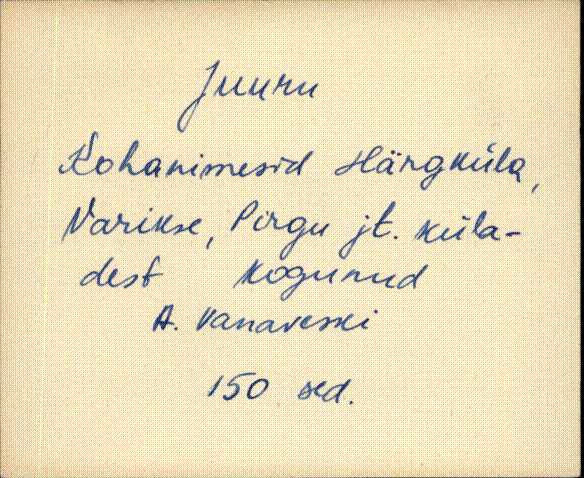 Juuru
Kohanimesid Härgküla,
Varikse, Pirgu jt. küla-
dest kogunud
A. Vanaveski
150 sed.